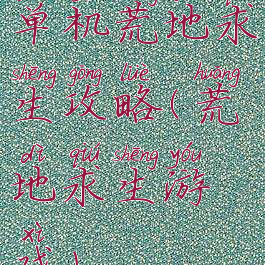 单机荒地求
shēng gōng lüè huāng
生攻略(荒
dì qiú shēng yóu
地求生游
xì
戏)